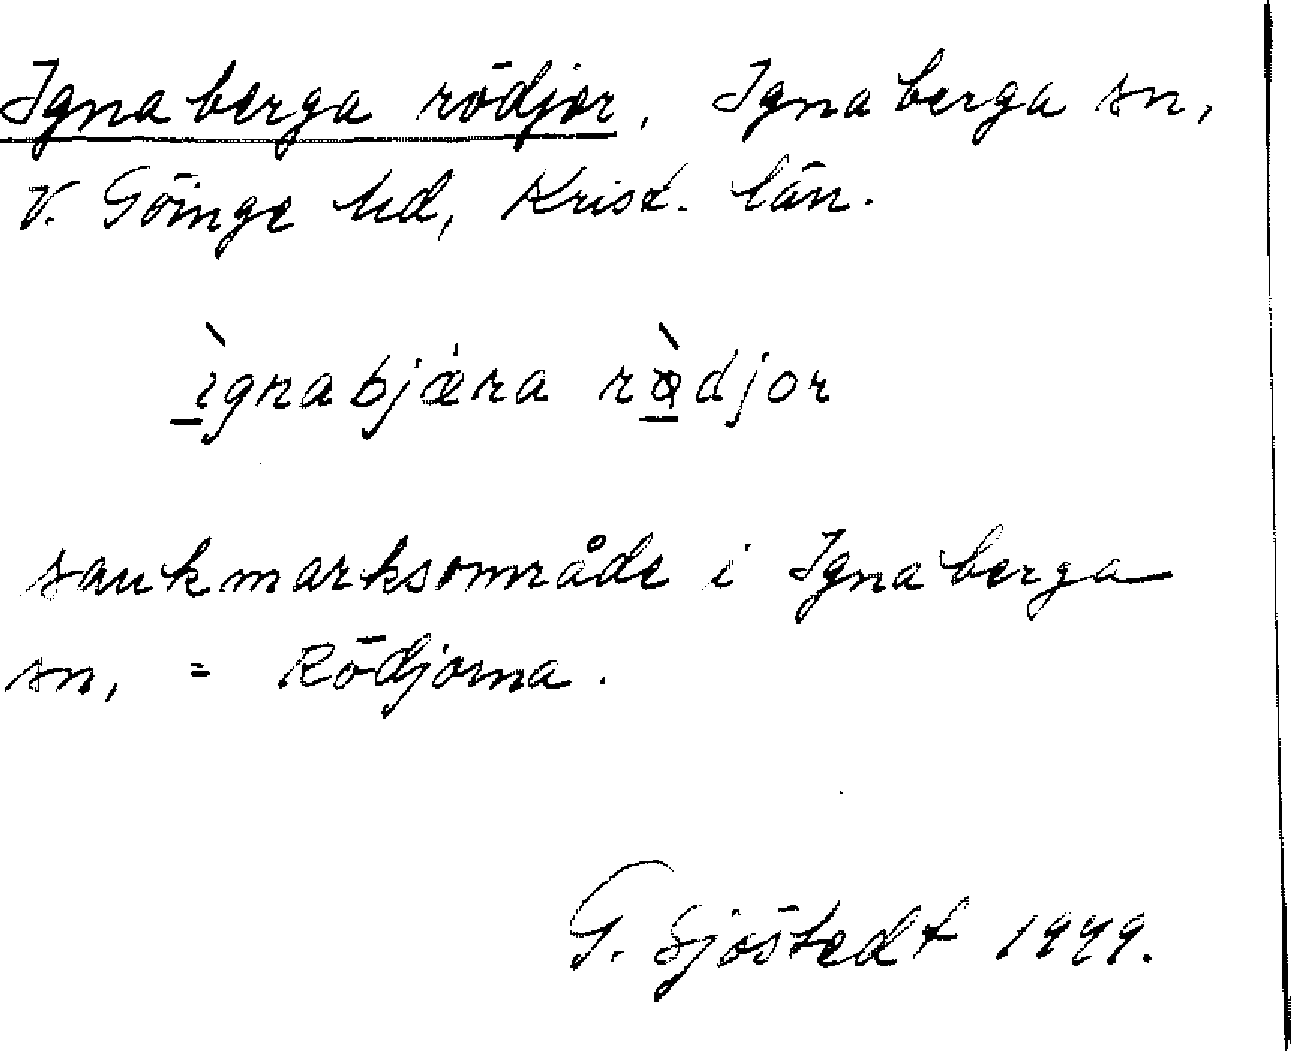 Ignaberga rödjor. Ignaberga sn,
V. Göinge hd, Krist. län.
ìgnabjæra rø̀djor
sankmarksområde i Ignaberga
sn, = Rödjorna.
G. Sjöstedt 1949.